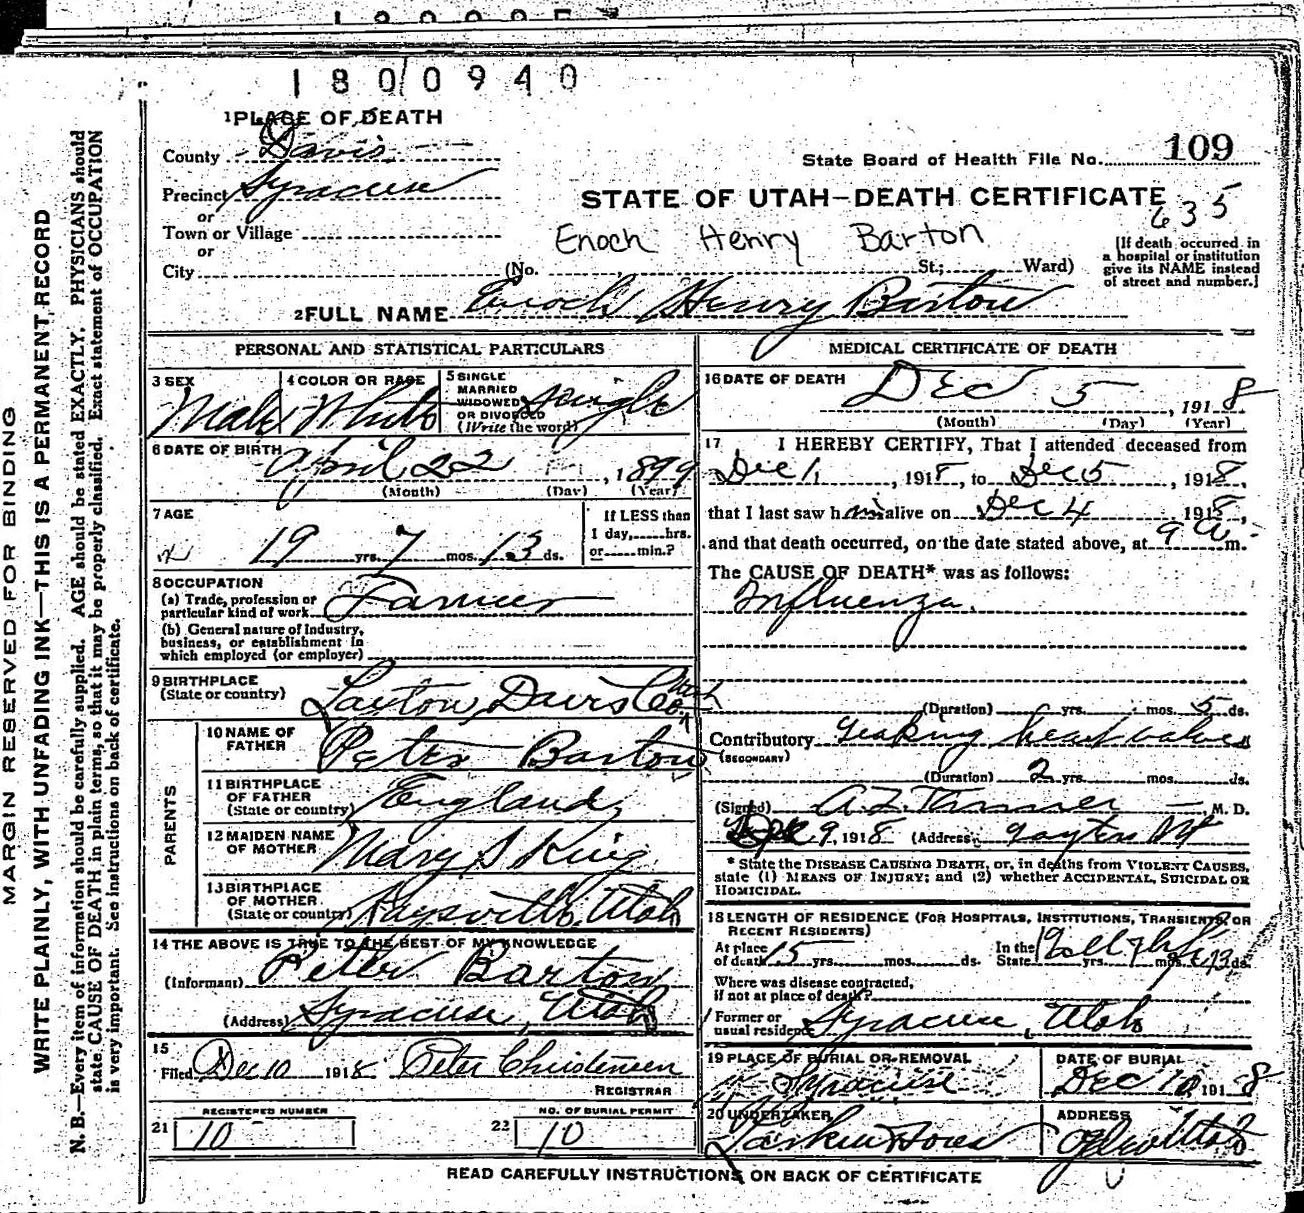 1800940
1 PLACE OF DEATH
County Davis
State Board of Health File No. 109
Precinct Syracuse
STATE OF UTAH—DEATH CERTIFICATE
635
or
Town or Village
Enoch Henry Barton
or
City (No. St.; Ward)
[If death occurred in
a hospital or institution
give its NAME instead
of street and number.]
2 FULL NAME Enoch Henry Barton
PERSONAL AND STATISTICAL PARTICULARS
3 SEX Male
4 COLOR OR RACE White
5 SINGLE
MARRIED
WIDOWED
OR DIVORCED
(Write the word) Single
6 DATE OF BIRTH April 22, 1899
(Month) (Day) (Year)
7 AGE
19 yrs. 7 mos. 13 ds.
If LESS than
1 day, hrs.
or min.?
8 OCCUPATION
(a) Trade, profession or
particular kind of work Farmer
(b) General nature of Industry,
business, or establishment in
which employed (or employer)
9 BIRTHPLACE
(State or country) Layton, Davis Co. Utah
PARENTS
10 NAME OF
FATHER Peter Barton
11 BIRTHPLACE
OF FATHER
(State or country) England
12 MAIDEN NAME
OF MOTHER Mary S King
13 BIRTHPLACE
OF MOTHER
(State or country) Kaysville, Utah
14 THE ABOVE IS TRUE TO THE BEST OF MY KNOWLEDGE
(Informant) Peter Barton
(Address) Syracuse, Utah
15
Filed Dec 10 1918 Peter Christensen
REGISTRAR
REGISTERED NUMBER
21 10
NO. OF BURIAL PERMIT
22 10
MEDICAL CERTIFICATE OF DEATH
16 DATE OF DEATH Dec 5, 1918
(Month) (Day) (Year)
17 I HEREBY CERTIFY, That I attended deceased from
Dec 1, 1918, to Dec 5, 1918,
that I last saw him alive on Dec 4 1918,
and that death occurred, on the date stated above, at 9 a.m.
The CAUSE OF DEATH* was as follows:
Influenza.
(Duration) yrs. mos. 5 ds.
Contributory Leaking heart valves
(SECONDARY)
(Duration) 2 yrs. mos. ds.
(Signed) A Z Tanner M. D.
Dec 9, 1918 (Address) Layton Ut
* State the DISEASE CAUSING DEATH, or, in deaths from VIOLENT CAUSES,
state (1) MEANS OF INJURY; and (2) whether ACCIDENTAL, SUICIDAL OR
HOMICIDAL.
18 LENGTH OF RESIDENCE (FOR HOSPITALS, INSTITUTIONS, TRANSIENTS, OR
RECENT RESIDENTS)
At place
of death 15 yrs. mos. ds.
In the
State yrs. mos. 13 ds.
Where was disease contracted,
if not at place of death?
Former or
usual residence Syracuse, Utah
19 PLACE OF BURIAL OR REMOVAL
Syracuse
DATE OF BURIAL
Dec 10, 1918
20 UNDERTAKER
Larkin & Sons
ADDRESS
Ogden Utah
READ CAREFULLY INSTRUCTIONS ON BACK OF CERTIFICATE
MARGIN RESERVED FOR BINDING
WRITE PLAINLY, WITH UNFADING INK—THIS IS A PERMANENT RECORD
N. B.—Every item of information should be carefully supplied. AGE should be stated EXACTLY. PHYSICIANS should
state CAUSE OF DEATH in plain terms, so that it may be properly classified. Exact statement of OCCUPATION
is very important. See instructions on back of certificate.